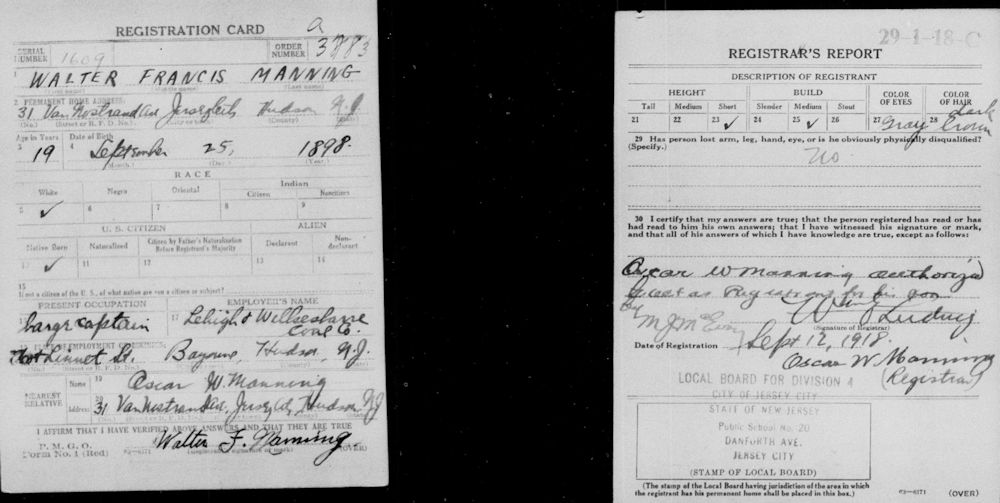 REGISTRATION CARD
SERIAL NUMBER 1609 ORDER NUMBER A
1 WALTER FRANCIS MANNING
(First name) (Middle name) (Last name)
2 PERMANENT HOME ADDRESS:
31 Van Nostrand Av Jersey City Hudson N.J.
(No.) (Street or R. F. D. No.) (City or town) (County) (State)
Age in Years Date of Birth
3 19 4 September 25, 1898.
(Month.) (Day.) (Year.)
RACE
White Negro Oriental Indian
Citizen Noncitizen
5 ✓ 6 7 8 9
U. S. CITIZEN ALIEN
Native Born Naturalized Citizen by Father's Naturalization Before Registrant's Majority Declarant Non-declarant
10 ✓ 11 12 13 14
15
If not a citizen of the U. S., of what nation are you a citizen or subject?
PRESENT OCCUPATION EMPLOYER'S NAME
barge captain 17 Lehigh & Wilkesbarre
Coal Co.
18 PLACE OF EMPLOYMENT OR BUSINESS:
Foot Linnet St. Bayonne, Hudson, N.J.
(No.) (Street or R. F. D. No.) (City or town) (County) (State)
NEAREST RELATIVE Name 19 Oscar W. Manning
Address 20 31 Van Nostrand Av, Jersey City, Hudson, N.J.
I AFFIRM THAT I HAVE VERIFIED ABOVE ANSWERS AND THAT THEY ARE TRUE
P. M. G. O.
Form No. 1 (Red) 03—6171 Walter F. Manning.
(Registrant's signature or mark) (OVER)
29-1-18-C
REGISTRAR'S REPORT
DESCRIPTION OF REGISTRANT
HEIGHT BUILD COLOR OF EYES COLOR OF HAIR
Tall Medium Short Slender Medium Stout
21 22 23 ✓ 24 25 ✓ 26 27 Gray 28 dark brown
29 Has person lost arm, leg, hand, eye, or is he obviously physically disqualified?
(Specify.) No
30 I certify that my answers are true; that the person registered has read or has
had read to him his own answers; that I have witnessed his signature or mark,
and that all of his answers of which I have knowledge are true, except as follows:
Oscar W Manning authorized
to act as Registrant for his son
Ludwig
By M.J.
(Signature of Registrar)
Date of Registration Sept 12, 1918.
Oscar W. Manning
(Registrar)
LOCAL BOARD FOR DIVISION 4
CITY OF JERSEY CITY
STATE OF NEW JERSEY
Public School No. 20
DANFORTH AVE.
JERSEY CITY
(STAMP OF LOCAL BOARD)
(The stamp of the Local Board having jurisdiction of the area in which
the registrant has his permanent home shall be placed in this box.)
03—6171 (OVER)